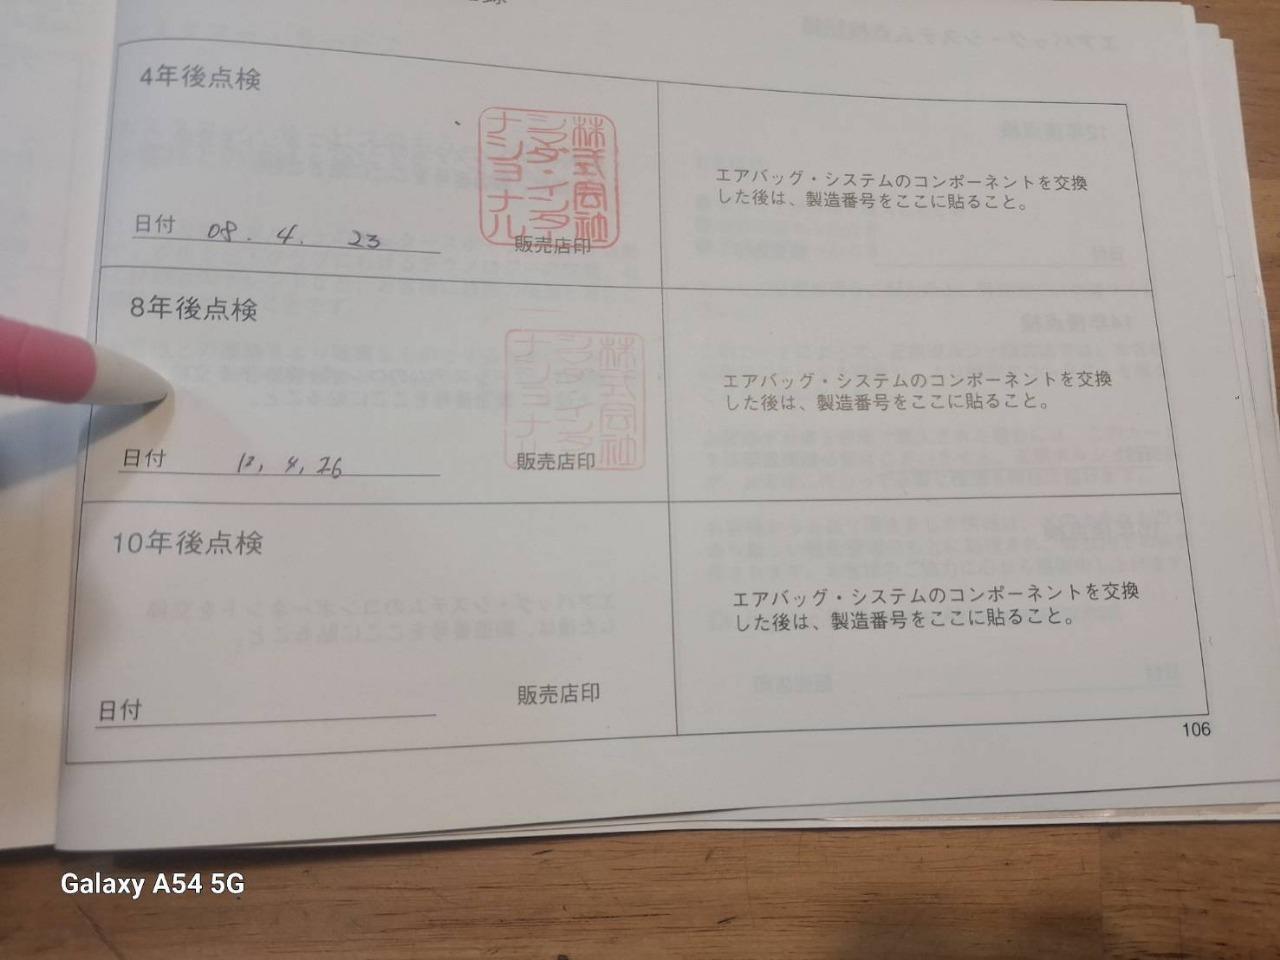 4年後点検
株式会社
シマダ・インター
ナショナル
日付 08. 4. 23
販売店印
エアバッグ・システムのコンポーネントを交換
した後は、製造番号をここに貼ること。
8年後点検
株式会社
ナショナル
日付 12, 4, 26
販売店印
エアバッグ・システムのコンポーネントを交換
した後は、製造番号をここに貼ること。
10年後点検
日付
販売店印
エアバッグ・システムのコンポーネントを交換
した後は、製造番号をここに貼ること。
106
Galaxy A54 5G